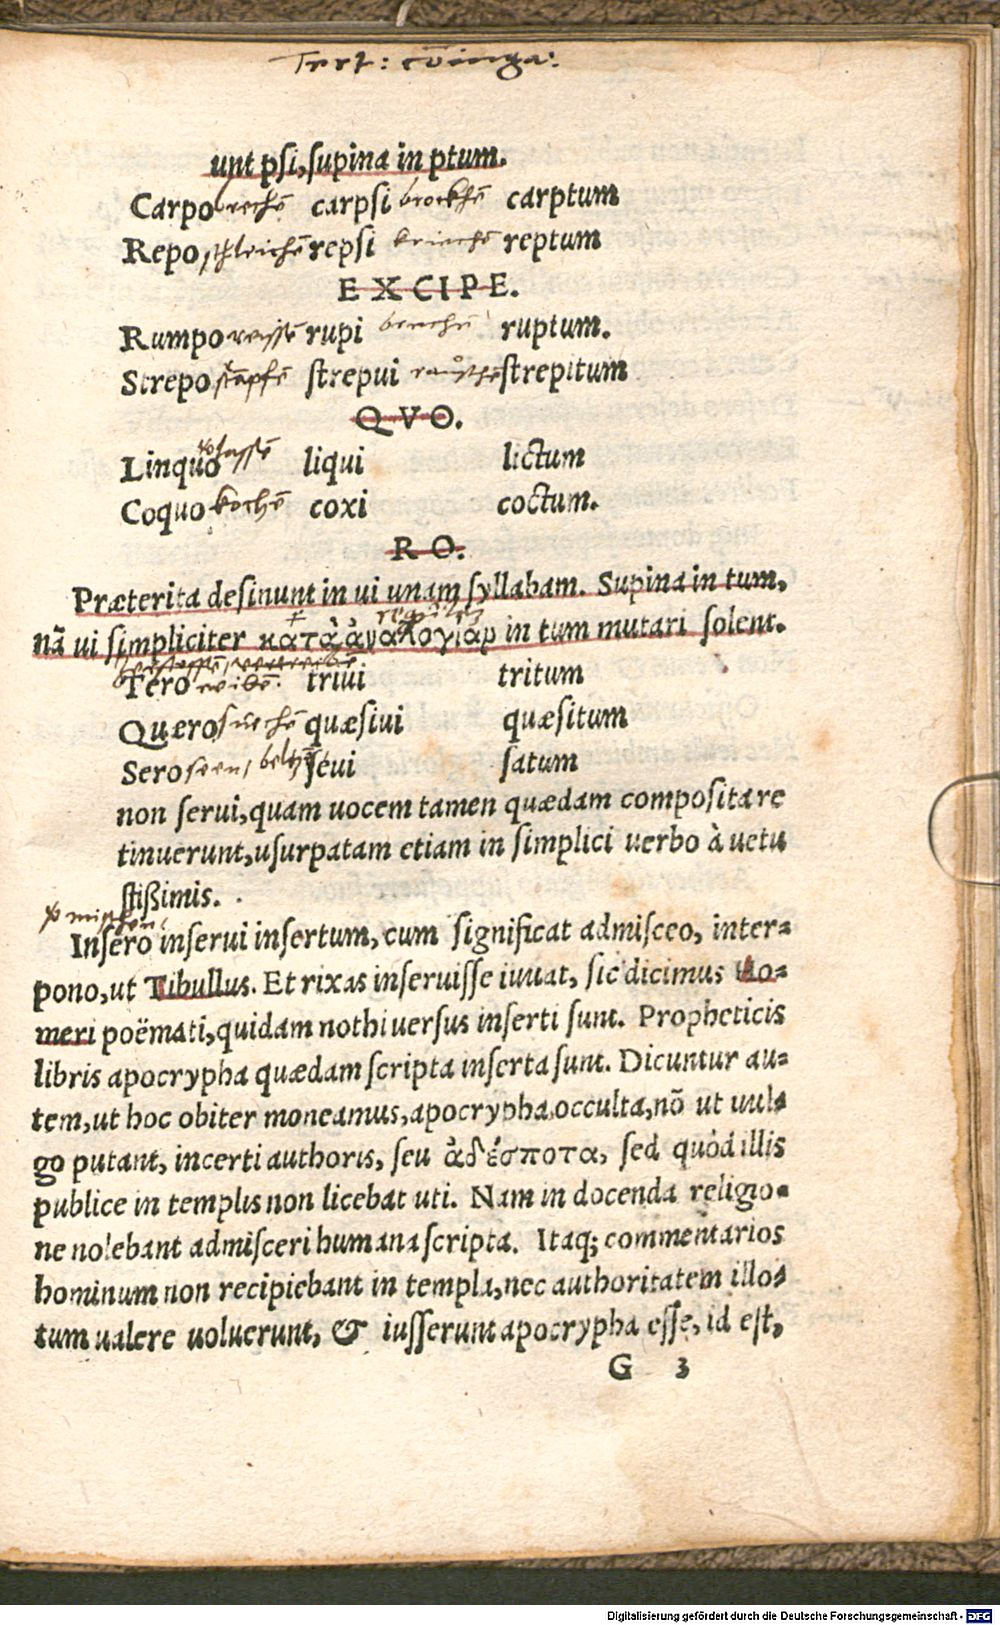 Tert: cōiuga:
unt psi, supina in ptum.
Carpo brechē carpsi brockhē carptum
Repo schleichē repsi kriechē reptum
EXCIPE.
Rumpo reissē rupi brechē ruptum.
Strepo stapfē strepui strepitum
QVO.
Linquo v̄lassē liqui lictum
Coquo kochē coxi coctum.
RO.
Præterita desinunt in ui unam syllabam. Supina in tum,
nā ui simpliciter κατὰ ἀναλογίαν in tum mutari solent.
Tero reibē trivi tritum
Quæro suechē quæsiui quæsitum
Sero seen, beltzē seui satum
non serui, quam uocem tamen quædam composita re
tinuerunt, usurpatam etiam in simplici uerbo à uetu
stißimis.
v̄mischen
Insero inserui insertum, cum significat admisceo, inter-
pono, ut Tibullus. Et rixas inseruisse iuuat, sic dicimus Ho-
meri poëmati, quidam nothi uersus inserti sunt. Propheticis
libris apocrypha quædam scripta inserta sunt. Dicuntur au-
tem, ut hoc obiter moneamus, apocrypha occulta, nō ut uul-
go putant, incerti authoris, seu ἀδέσποτα, sed quòd illis
publice in templis non licebat uti. Nam in docenda religio-
ne nolebant admisceri humana scripta. Itaq; commentarios
hominum non recipiebant in templa, nec authoritatem illo-
tum ualere uoluerunt, & iusserunt apocrypha esse, id est,
G 3
Digitalisierung gefördert durch die Deutsche Forschungsgemeinschaft - DFG